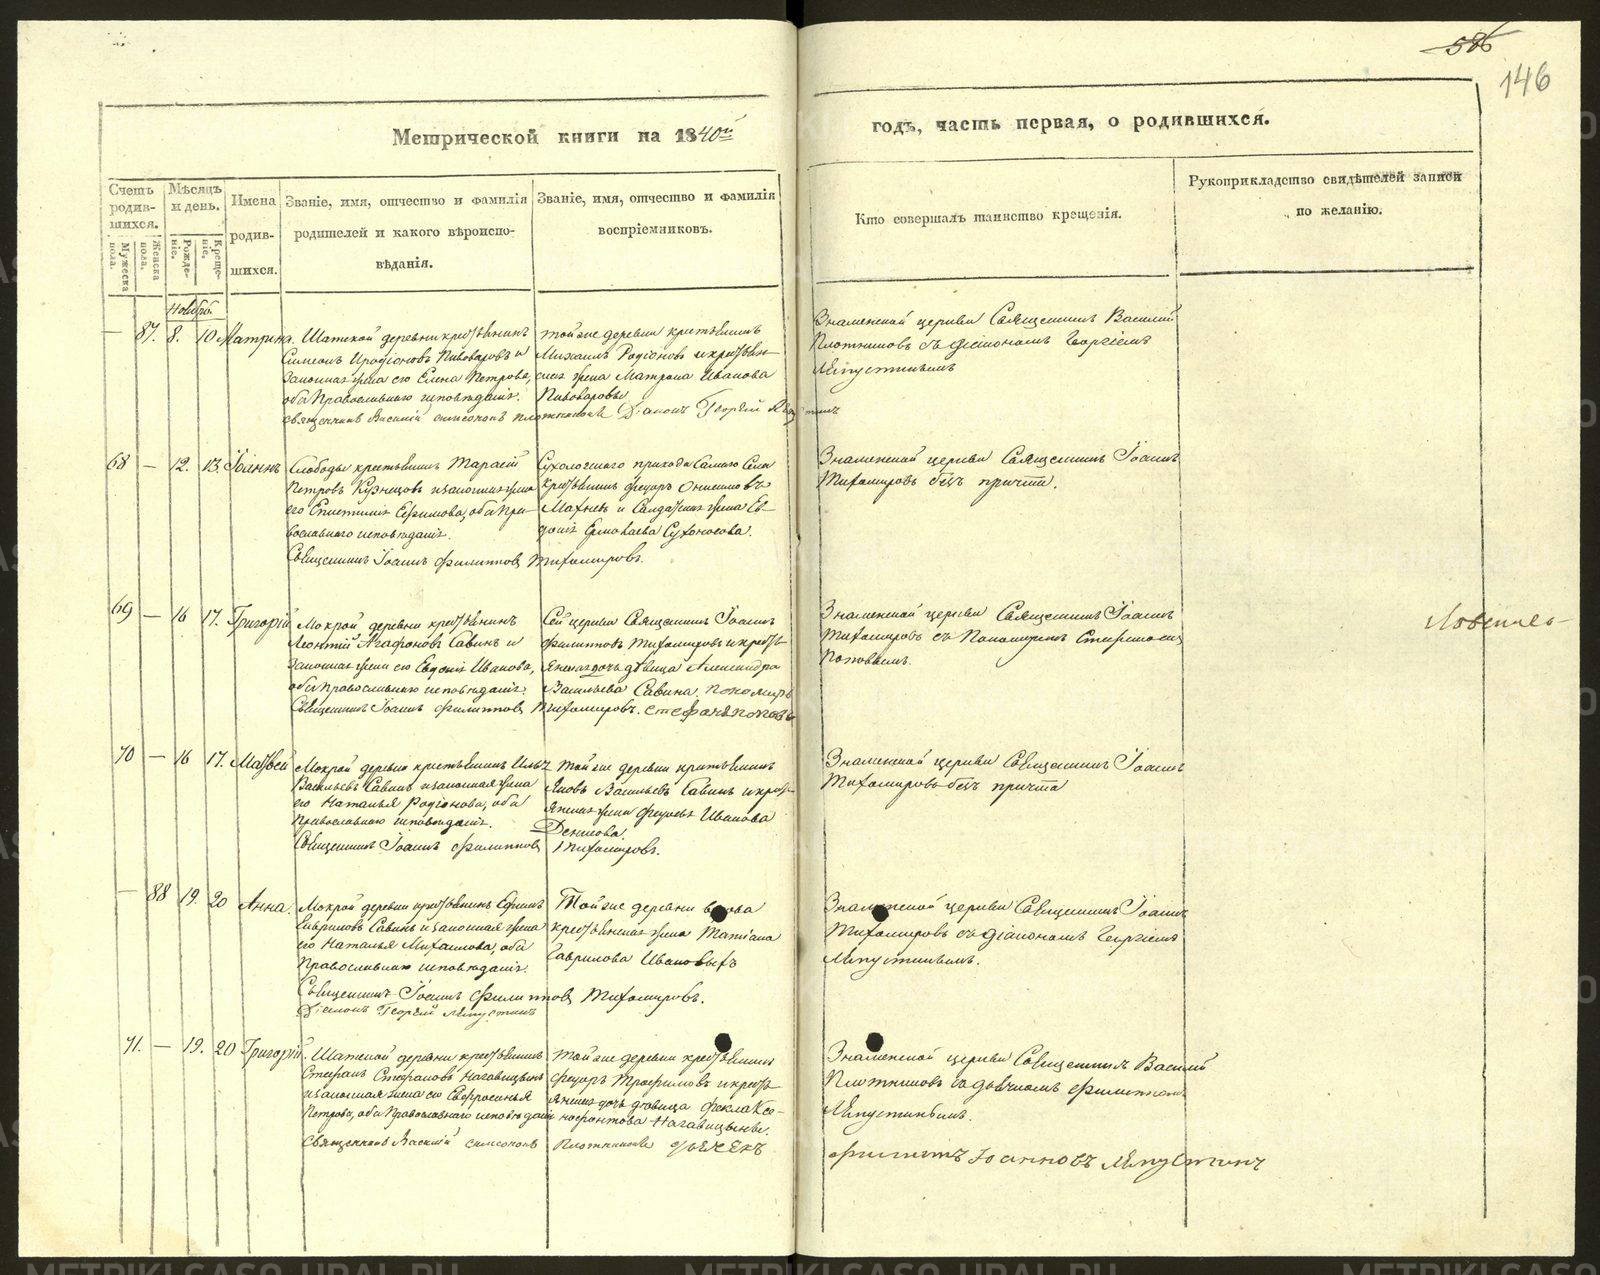 586
146
Метрической книги на 1840й
годъ, часть первая, о родившихся.
Счетъ родив-шихся.
Мужеска пола.
Женска пола.
Мѣсяцъ и день.
Рожде-ніе.
Креще-ніе.
Имена
родив-
шихся.
Званіе, имя, отчество и фамилія
родителей и какого вѣроиспо-
вѣданія.
Званіе, имя, отчество и фамилія
воспріемниковъ.
Кто совершалъ таинство крещенія.
Рукоприкладство свидѣтелей записи
по желанію.
Ноябрь
— 87. 8. 10 Матрина.
деревни крестьянинъ
Симеонъ Иродіоновъ Пивоваровъ и
законная жена его Елена Петрова,
оба Православнаго исповѣданія.
Священникъ Василій Симеоновъ Плотниковъ Діаконъ Георгій
той же деревни крестьянинъ
Михаилъ Родіоновъ и крестьян-
ская жена Матрона Иванова
Пивоваровы
Знаменской церкви Священникъ Василій
Плотниковъ съ Діакономъ Георгіемъ
Ляпустинымъ
68 — 12. 13. Іоаннъ
Слободы крестьянинъ Тарасій
Петровъ Кузнецовъ и законная жена
его Ефимова, оба Пра-
вославнаго исповѣданія.
Священникъ Іоаннъ Филипповъ Тихомировъ.
Сухоложскаго прихода Села
крестьянинъ Федоръ Онисимовъ
Махневъ и Солдатская жена Ев-
докія Ермолаева Сухоносова.
Знаменской церкви Священникъ Іоаннъ
Тихомировъ безъ причта.
69 — 16 17. Григорій
Мокрой деревни крестьянинъ
Леонтій Агафоновъ Савинъ и
законная жена его Евдокія Иванова,
оба Православнаго исповѣданія.
Священникъ Іоаннъ Филипповъ Тихомировъ. Стефанъ Поповъ
Сей церкви Священникъ Іоаннъ
Филипповъ Тихомировъ и кресть-
янская дочь дѣвица Александра
Васильева Савина. Пономарь
Знаменской церкви Священникъ Іоаннъ
Тихомировъ съ Пономаремъ Стефаномъ
Поповымъ.
70 — 16 17. Матвей
Мокрой деревни крестьянинъ Илья
Васильевъ Савинъ и законная жена
его Наталья Родіонова, оба
Православнаго исповѣданія.
Священникъ Іоаннъ Филипповъ Тихомировъ.
Той же деревни крестьянинъ
Яковъ Васильевъ Савинъ и кресть-
янская жена Иванова
Денисова.
Знаменской церкви Священникъ Іоаннъ
Тихомировъ безъ причта
— 88 19. 20 Анна.
Мокрой деревни крестьянинъ Ефимъ
Гавриловъ Савинъ и законная жена
его Наталья Михаилова, оба
Православнаго исповѣданія.
Священникъ Іоаннъ Филипповъ Тихомировъ.
Діаконъ Георгій Ляпустинъ
Той же деревни вдова
крестьянская жена Татіана
Гаврилова Ивановыхъ
Знаменской церкви Священникъ Іоаннъ
Тихомировъ съ Діакономъ Георгіемъ
Ляпустинымъ.
71. — 19. 20 Григорій.
деревни крестьянинъ
Стефанъ Стефановъ Нагавицынъ
и законная жена его Евфросинья
Петрова, оба Православнаго исповѣданія
Священникъ Василій Симеоновъ Плотниковъ Дьячекъ
той же деревни крестьянинъ
Федоръ Трофимовъ и кресть-
янская дочь дѣвица Фекла Ксе-
нофонтова Нагавицыны.
Знаменской церкви Священникъ Василій
Плотниковъ съ дьячкомъ Филиппомъ
Ляпустинымъ.
Филиппъ Іоанновъ Ляпустинъ